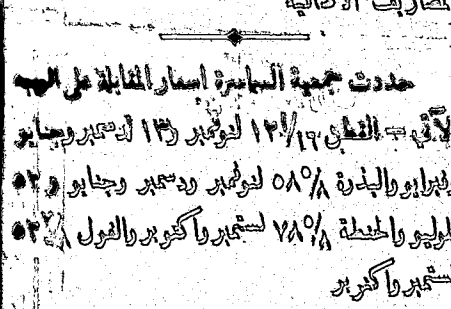 المصاريف الادارية
حددت جمعية السماسرة اسعار المقابلة على الوجه
الآتي = القطن ١٢١/١٦ لنوفمبر و١٣ لدسمبر وجنايو
وفبرايو والبذرة ٥٨ لنوفمبر ودسمبر وجنايو و ٥٢
لوليو والحنطة ٧٨ لستمبر واكتوبر والفول
ستمبر واكتوبر